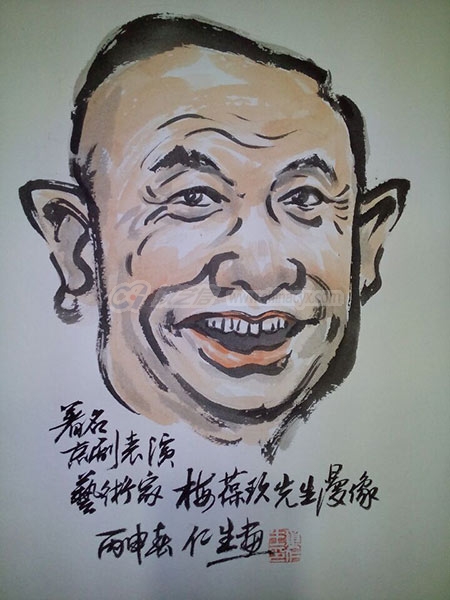 著名
京剧表演
藝術家 梅葆玖先生漫像
丙申春 仁生画